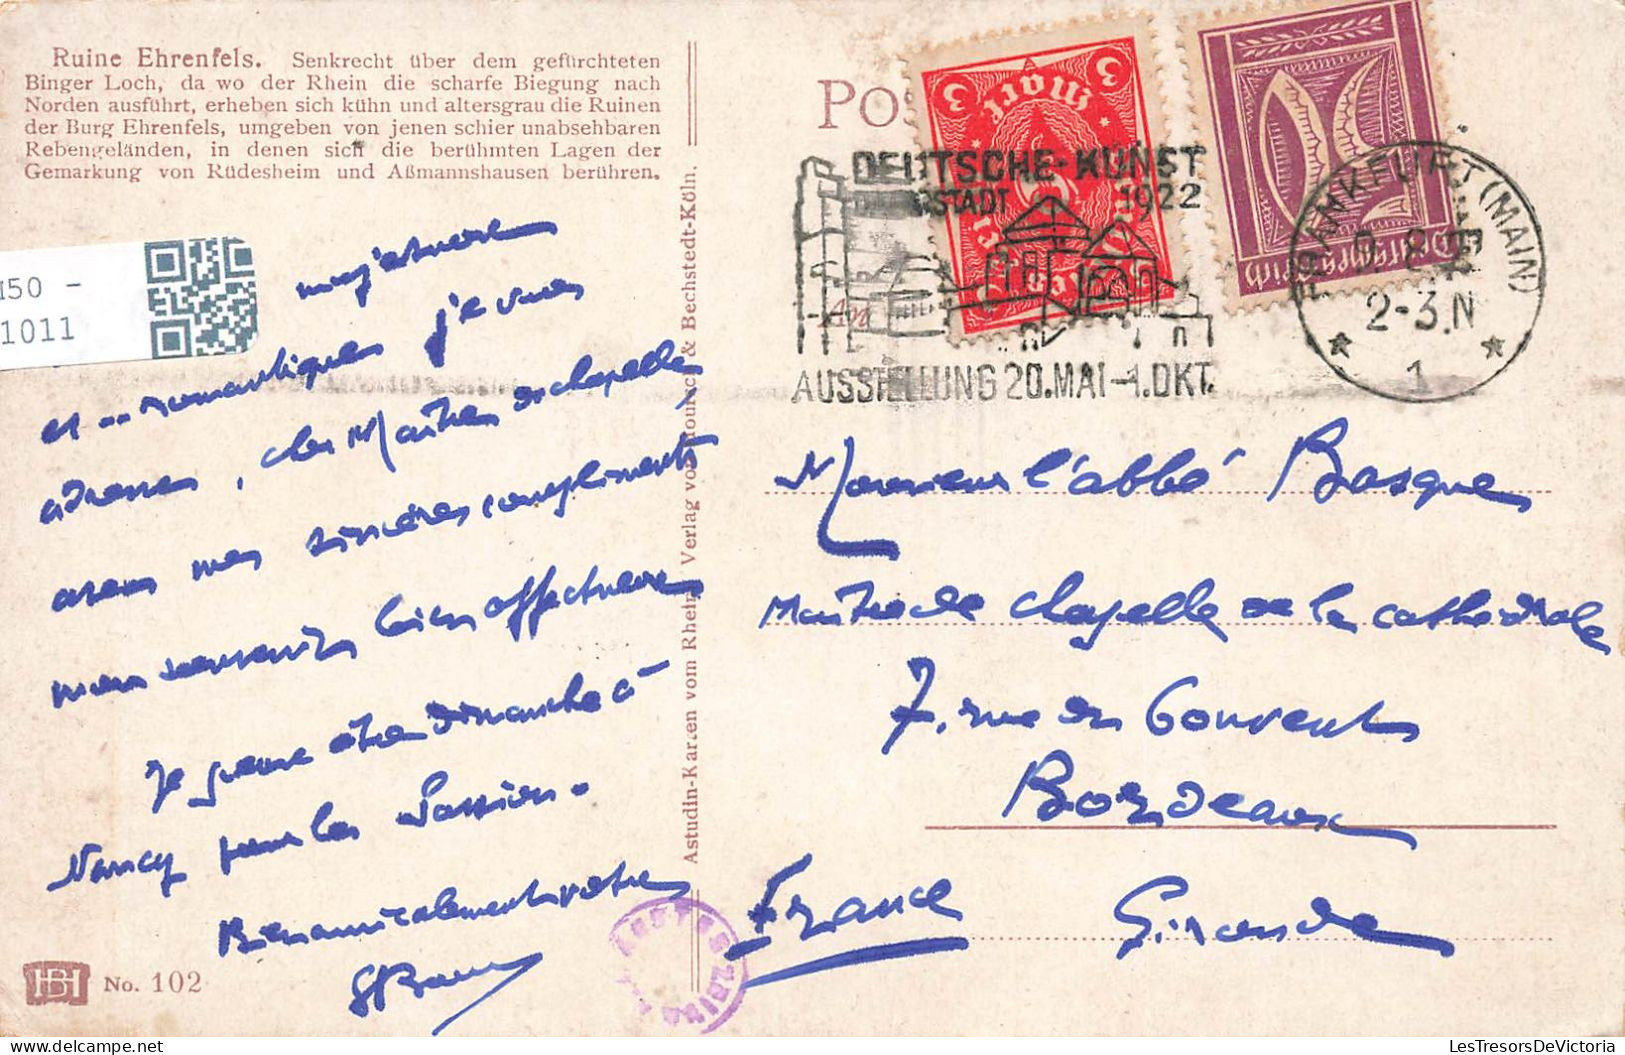 Ruine Ehrenfels. Senkrecht über dem gefürchteten
Binger Loch, da wo der Rhein die scharfe Biegung nach
Norden ausführt, erheben sich kühn und altersgrau die Ruinen
der Burg Ehrenfels, umgeben von jenen schier unabsehbaren
Rebengeländen, in denen sich die berühmten Lagen der
Gemarkung von Rüdesheim und Aßmannshausen berühren.
150 -
1011
majestueux
et .. romantiques je vous
adresse, cher Maître de chapelle,
avec mes sincères compliments,
mon souvenir bien affectueux
Je pense être dimanche à
Nancy pour la Passion.
Bien amicalement votre
No. 102
Astudin-Karten vom Rhein. Verlag von Hoursch & Bechstedt-Köln.
Pos
An
3 3
Mark
Deutsches Reich
DEUTSCHE-KUNST
STADT 1922
AUSSTELLUNG 20.MAI-1.OKT.
FRANKFURT (MAIN)
2-3.N
1
Monsieur l'abbé Basque
Maître de chapelle de la cathédrale
7, rue du Couvent
Bordeaux
France Gironde
LesTresorsDeVictoria